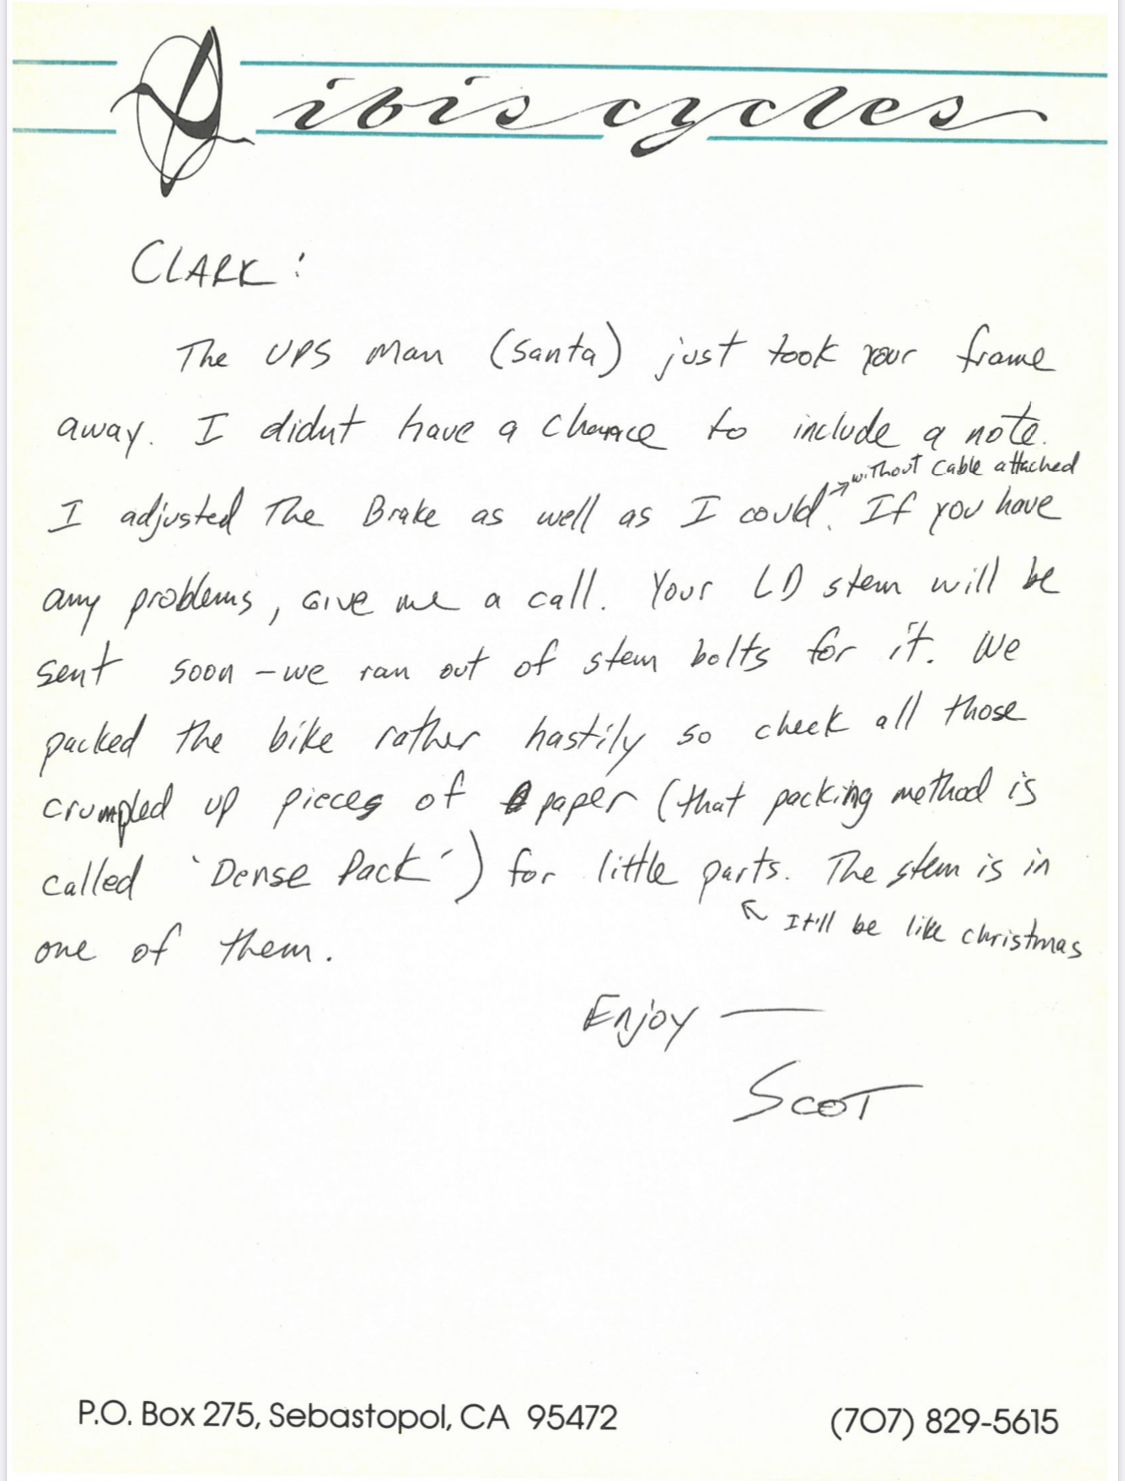 ibis cycles
CLARK:
The UPS Man (Santa) just took your frame
away. I didnt have a chance to include a note.
without cable attached
I adjusted The Brake as well as I could. If you have
any problems, Give me a call. Your LD stem will be
sent soon - we ran out of stem bolts for it. We
packed the bike rather hastily so check all those
crumpled up pieces of paper (that packing method is
called 'Dense Pack') for little parts. The stem is in
It'll be like christmas
one of them.
Enjoy —
Scot
P.O. Box 275, Sebastopol, CA 95472
(707) 829-5615